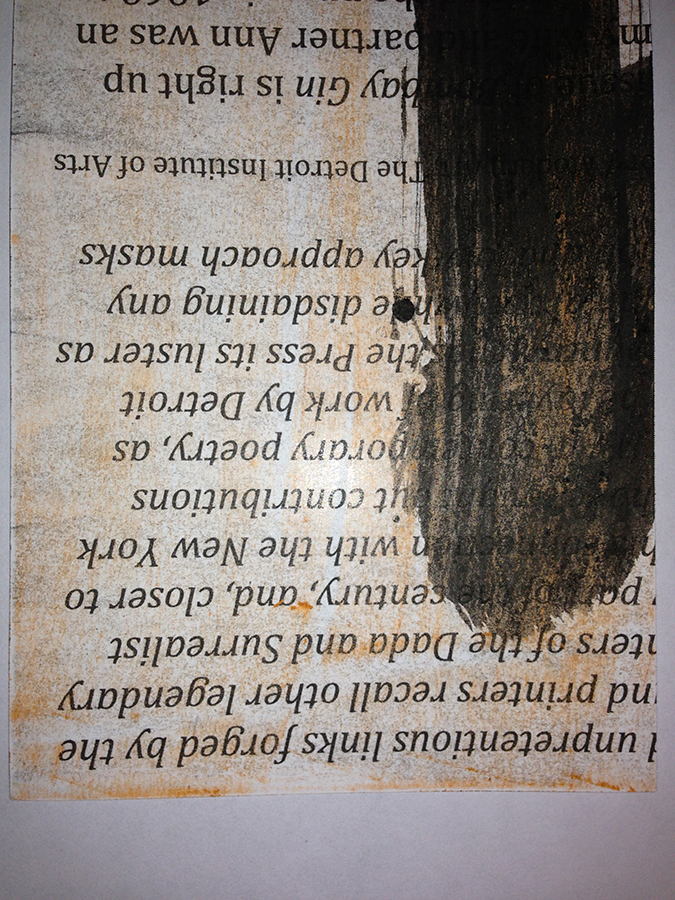 unpretentious links forged by the
printers recall other legendary
of the Dada and Surrealist
part of the century, and, closer to
connection with the New York
but contributions
contemporary poetry, as
of work by Detroit
the Press its luster as
while disdaining any
key approach masks
The Detroit Institute of Arts
issue Bombay Gin is right up
my wife and partner Ann was an